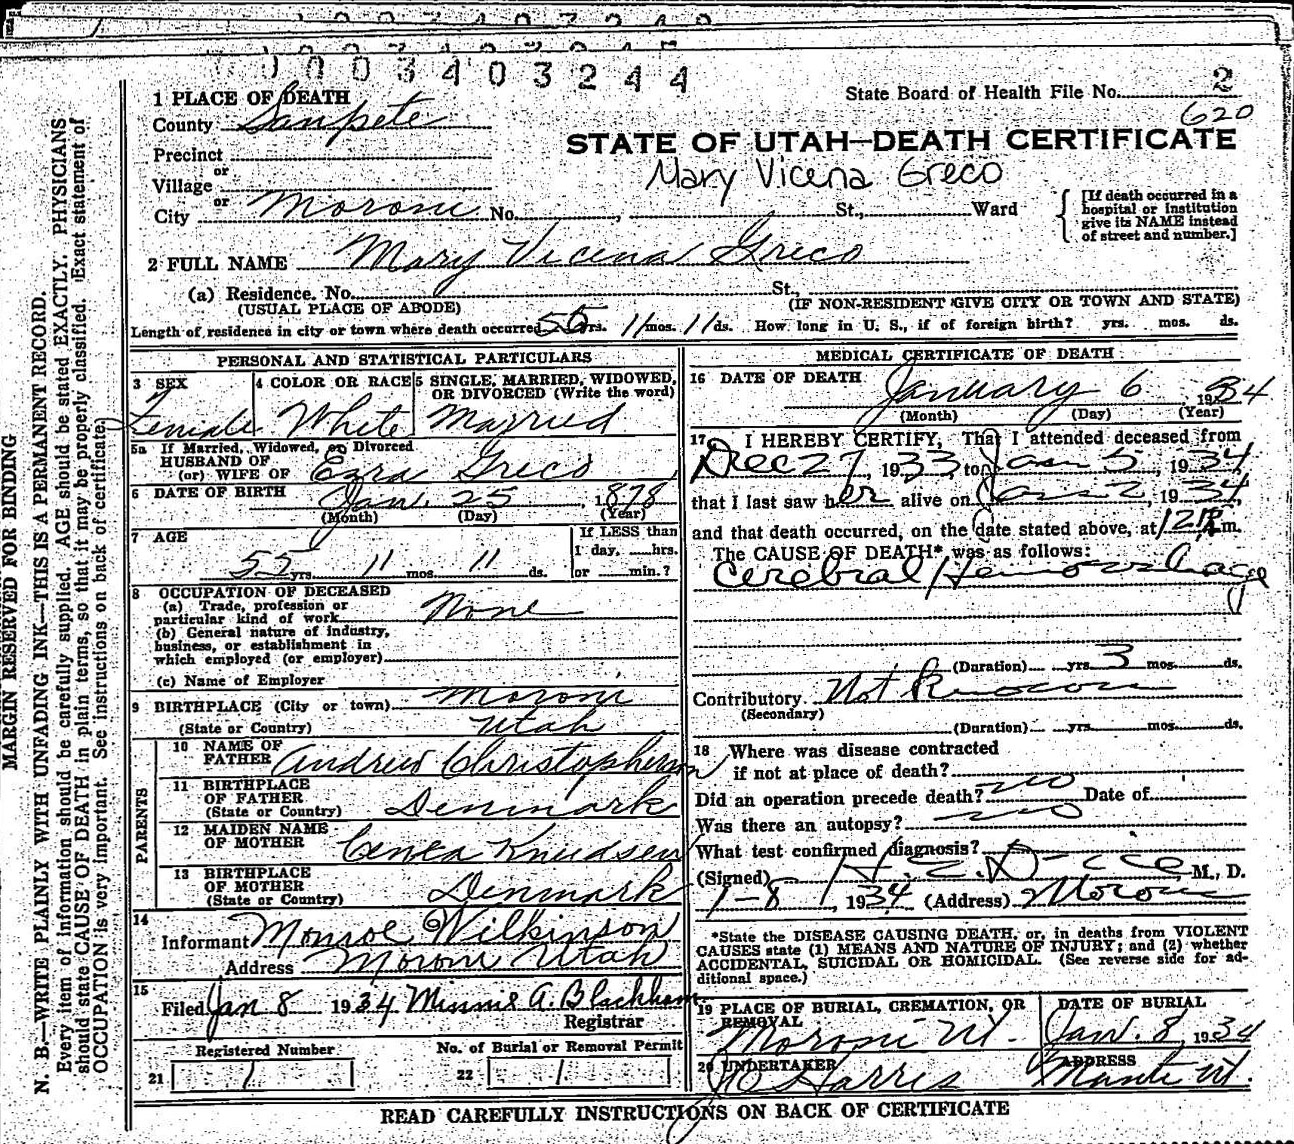 1003403244
State Board of Health File No. 2
620
1 PLACE OF DEATH
County Sanpete
STATE OF UTAH—DEATH CERTIFICATE
Precinct
or
Village
Mary Vicena Greco
or
City Moroni No. , St., Ward
[If death occurred in a hospital or institution give its NAME instead of street and number.]
2 FULL NAME Mary Vicena Greco
(a) Residence. No. St.,
(USUAL PLACE OF ABODE) (IF NON-RESIDENT GIVE CITY OR TOWN AND STATE)
Length of residence in city or town where death occurred 55 yrs. 11 mos. 11 ds. How long in U. S., if of foreign birth? yrs. mos. ds.
PERSONAL AND STATISTICAL PARTICULARS
3 SEX 4 COLOR OR RACE 5 SINGLE, MARRIED, WIDOWED, OR DIVORCED (Write the word)
Female White Married
5a If Married, Widowed, or Divorced
HUSBAND OF
(or) WIFE OF Ezra Greco
6 DATE OF BIRTH Jan. 25, 1878
(Month) (Day) (Year)
7 AGE
55 yrs. 11 mos. 11 ds.
If LESS than
1 day, ......hrs.
or ......min.?
8 OCCUPATION OF DECEASED
(a) Trade, profession or
particular kind of work None
(b) General nature of industry,
business, or establishment in
which employed (or employer)
(c) Name of Employer
9 BIRTHPLACE (City or town) Moroni
(State or Country) Utah
PARENTS
10 NAME OF FATHER Andrew Christophersen
11 BIRTHPLACE OF FATHER
(State or Country) Denmark
12 MAIDEN NAME OF MOTHER Knudsen
13 BIRTHPLACE OF MOTHER
(State or Country) Denmark
14
Informant Monroe Wilkinson
Address Moroni Utah
15
Filed Jan 8 1934 Minnie A. Blackham
Registrar
Registered Number No. of Burial or Removal Permit
21 1 22 1
MEDICAL CERTIFICATE OF DEATH
16 DATE OF DEATH January 6, 1934
(Month) (Day) (Year)
17 I HEREBY CERTIFY, That I attended deceased from
Dec 27, 1933, to Jan 5, 1934,
that I last saw her alive on Jan 2, 1934,
and that death occurred, on the date stated above, at 12 m.
The CAUSE OF DEATH*, was as follows:
Cerebral Hemorrhage
(Duration) yrs. 3 mos. ds.
Contributory Not Known
(Secondary)
(Duration) yrs. mos. ds.
18 Where was disease contracted
if not at place of death?
Did an operation precede death? no Date of
Was there an autopsy? no
What test confirmed diagnosis?
(Signed) , M., D.
1-8, 1934 (Address) Moroni
*State the DISEASE CAUSING DEATH, or, in deaths from VIOLENT
CAUSES state (1) MEANS AND NATURE OF INJURY; and (2) whether
ACCIDENTAL, SUICIDAL OR HOMICIDAL. (See reverse side for ad-
ditional space.)
19 PLACE OF BURIAL, CREMATION, OR REMOVAL DATE OF BURIAL
Moroni Ut. Jan. 8, 1934
20 UNDERTAKER ADDRESS
Harris Manti Ut.
READ CAREFULLY INSTRUCTIONS ON BACK OF CERTIFICATE
MARGIN RESERVED FOR BINDING
N. B.—WRITE PLAINLY WITH UNFADING INK—THIS IS A PERMANENT RECORD.
Every item of information should be carefully supplied. AGE should be stated EXACTLY. PHYSICIANS
should state CAUSE OF DEATH in plain terms, so that it may be properly classified. Exact statement of
OCCUPATION is very important. See instructions on back of certificate.